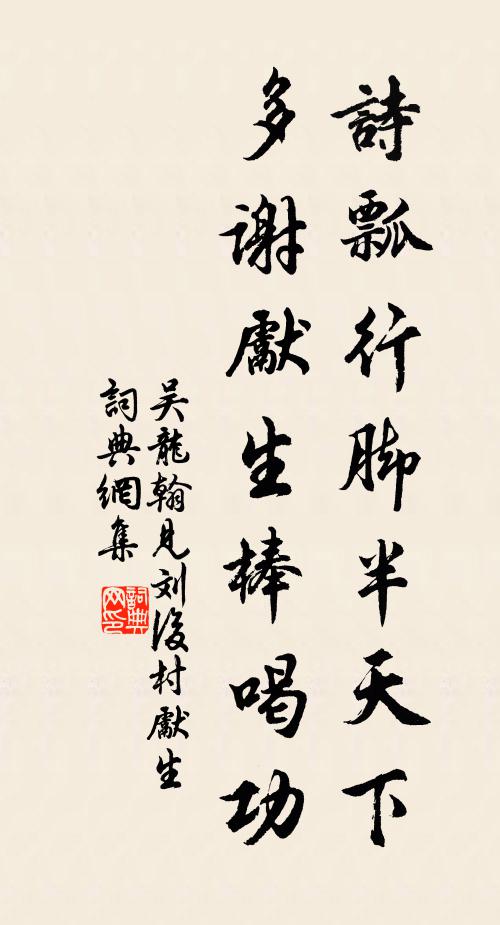 詩瓢行脚半天下
多謝獻生棒喝功
吴龍翰見刘後村獻生
詞典網集
詞典网印